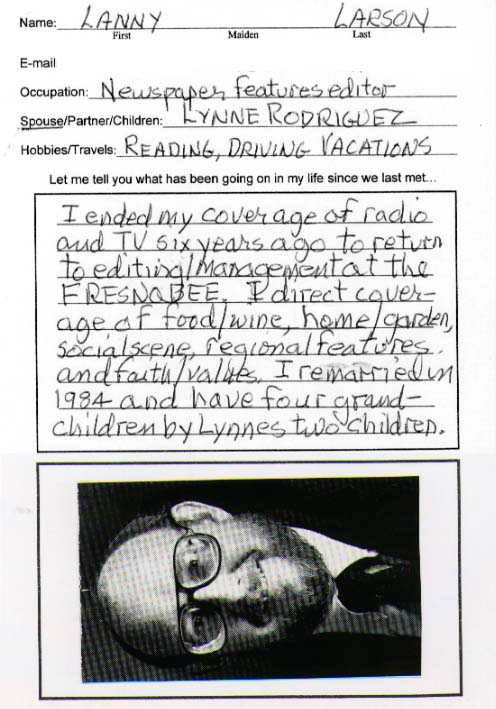 Name: LANNY LARSON
First Maiden Last
E-mail
Occupation: Newspaper features editor
Spouse/Partner/Children: LYNNE RODRIGUEZ
Hobbies/Travels: READING, DRIVING VACATIONS
Let me tell you what has been going on in my life since we last met...
I ended my coverage of radio
and TV six years ago to return
to editing/management at the
FRESNO BEE. I direct cover-
age of food/wine, home/garden,
social scene, regional features
and faith/values. I remarried in
1984 and have four grand-
children by Lynnes two children.